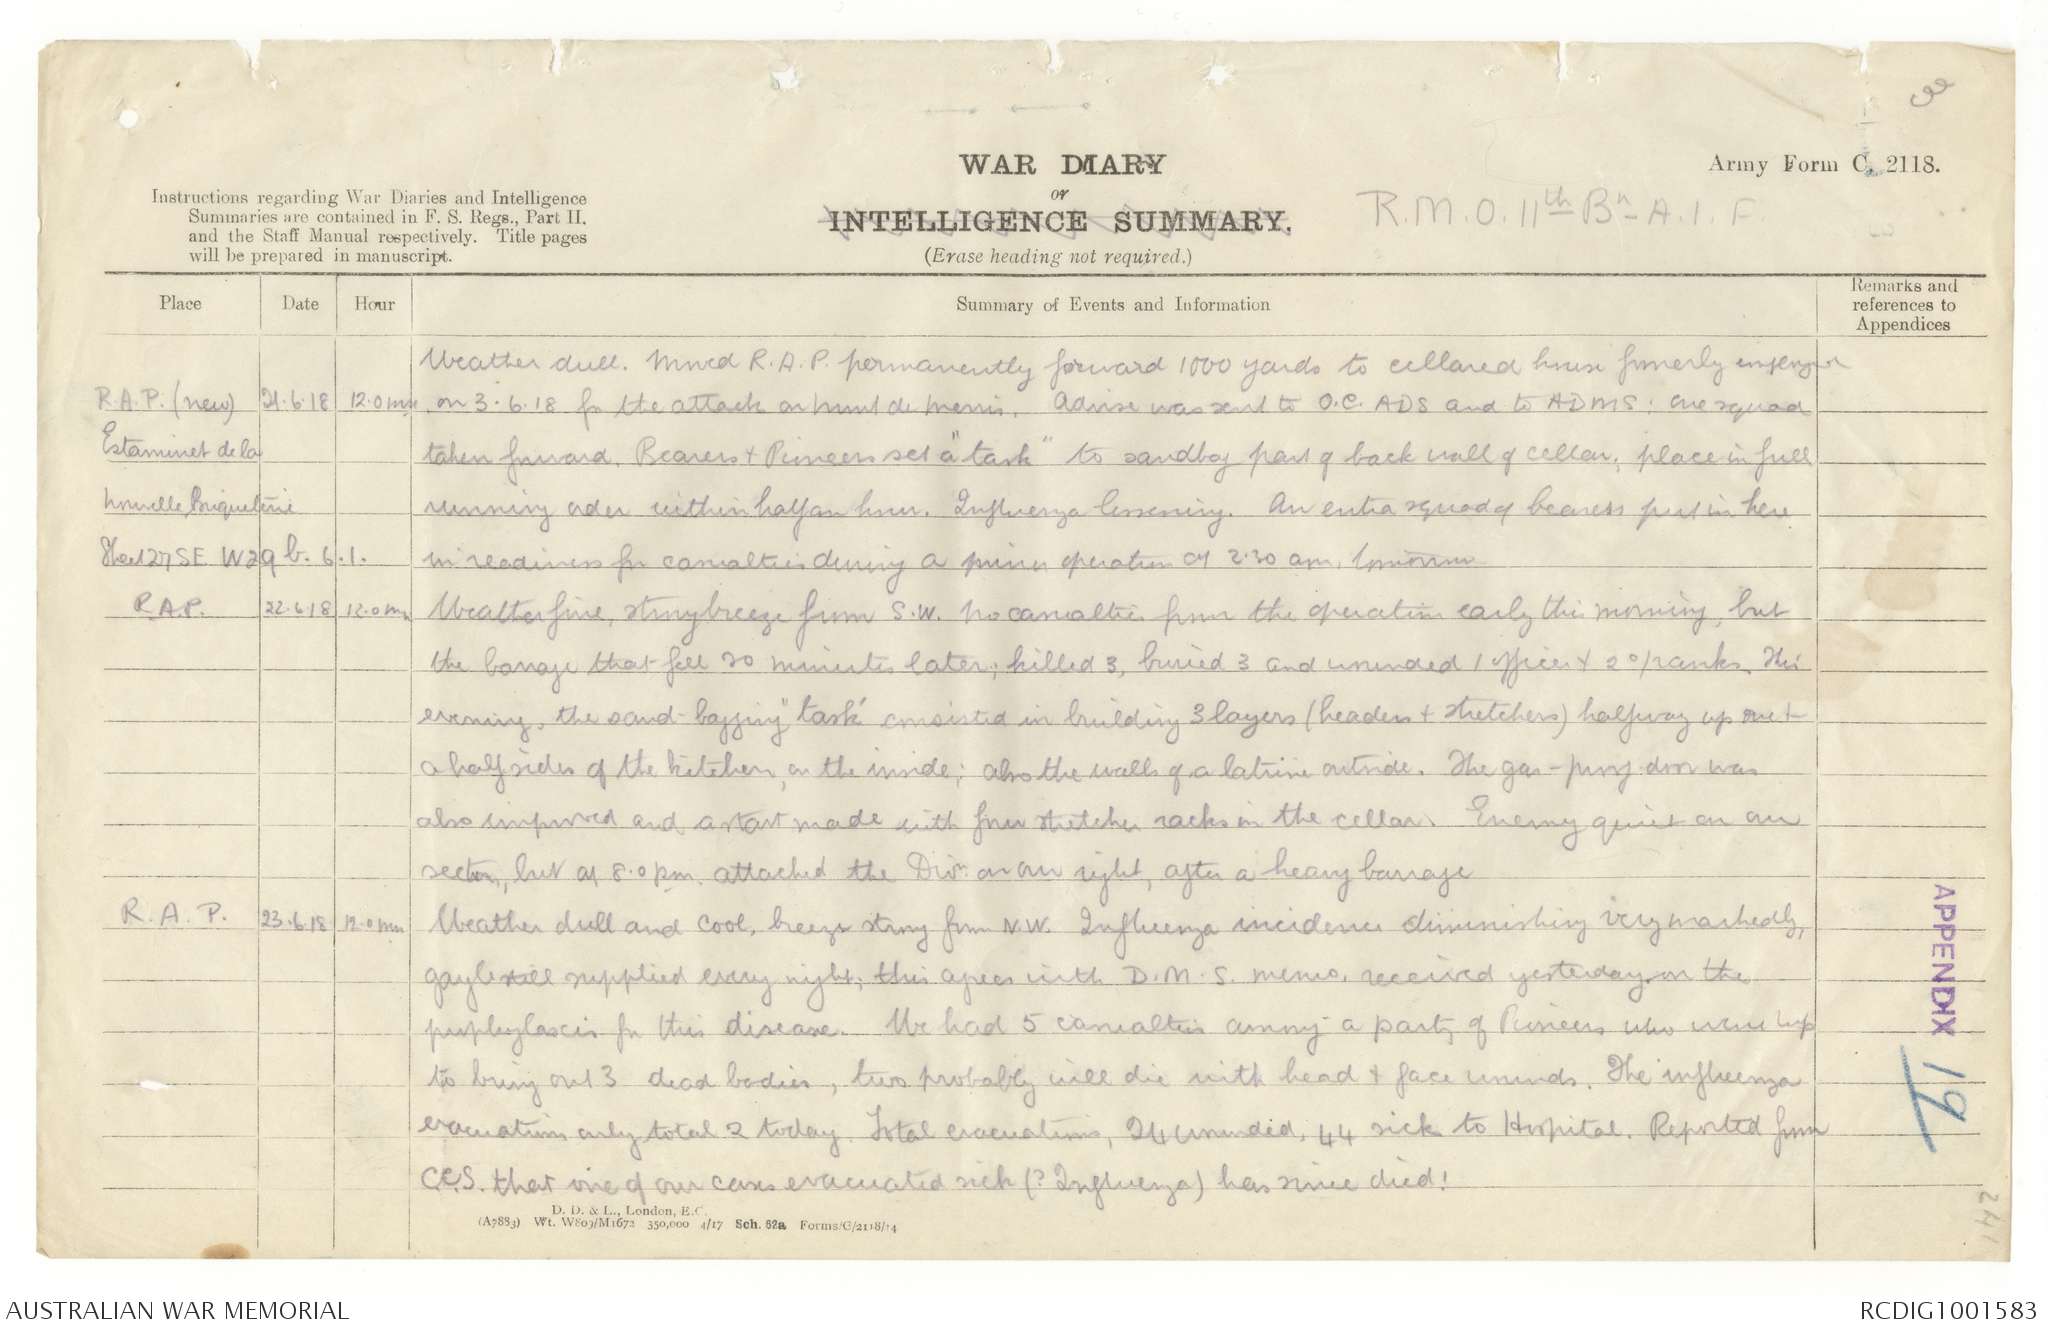 WAR DIARY
or
INTELLIGENCE SUMMARY.
(Erase heading not required.)
Army Form C. 2118.
R.M.O. 11th Bn A.I.F
Instructions regarding War Diaries and Intelligence
Summaries are contained in F. S. Regs., Part II.
and the Staff Manual respectively. Title pages
will be prepared in manuscript.
Place Date Hour Summary of Events and Information Remarks and
references to
Appendices
Weather dull. Moved R.A.P. permanently forward 1000 yards to cellared house formerly
R.A.P. (new) 21.6.18 12.0 mn on 3.6.18 for the attack on mont de merris. Advise was sent to O.C. ADS and to ADMS; one squad
Estaminet de la taken forward. Bearers & Pioneers set a "task" to sandbag part of back wall of cellar; place in full
nouvelle briqueterie running order within half an hour. Influenza lessening. An extra squad of bearers put in here
Sheet 27 SE W29 b. 6.1. in readiness for casualties during a minor operation at 2.30 am, tomorrow
R.A.P. 22.6.18 12.0 mn Weather fine, strong breeze from S.W. No casualties from the operation early this morning, but
the barrage that fell 20 minutes later; killed 3, buried 3 and wounded 1 officer & 2 o/ranks. This
evening, the sand-bagging "task" consisted in building 3 layers (headers & stretchers) halfway up one &
a half sides of the kitchen, on the inside; also the walls of a latrine outside. The gas-proof door was
also improved and a start made with four stretcher racks in the cellar. Enemy quiet on our
sector, but at 8.0 pm. attacked the Divn. on our right, after a heavy barrage
R.A.P. 23.6.18 12.0 mn Weather dull and cool, breeze strong from N.W. Influenza incidence diminishing very markedly,
still supplied every night; this agrees with D.M.S. memo. received yesterday on the
prophylaxis for this disease. We had 5 casualties among a party of Pioneers who were up
to bring out 3 dead bodies, two probably will die with head & face wounds. The influenza
evacuations only total 2 today. Total evacuations, 24 wounded, 44 sick to Hospital. Reported from
C.C.S. that one of our cases evacuated sick (? Influenza) has since died!
D. D. & L., London, E.C.
(A7883) Wt. W809/M1672 350,000 4/17 Sch. 82a Forms/C/2118/14
APPENDIX 19
AUSTRALIAN WAR MEMORIAL
RCDIG1001583